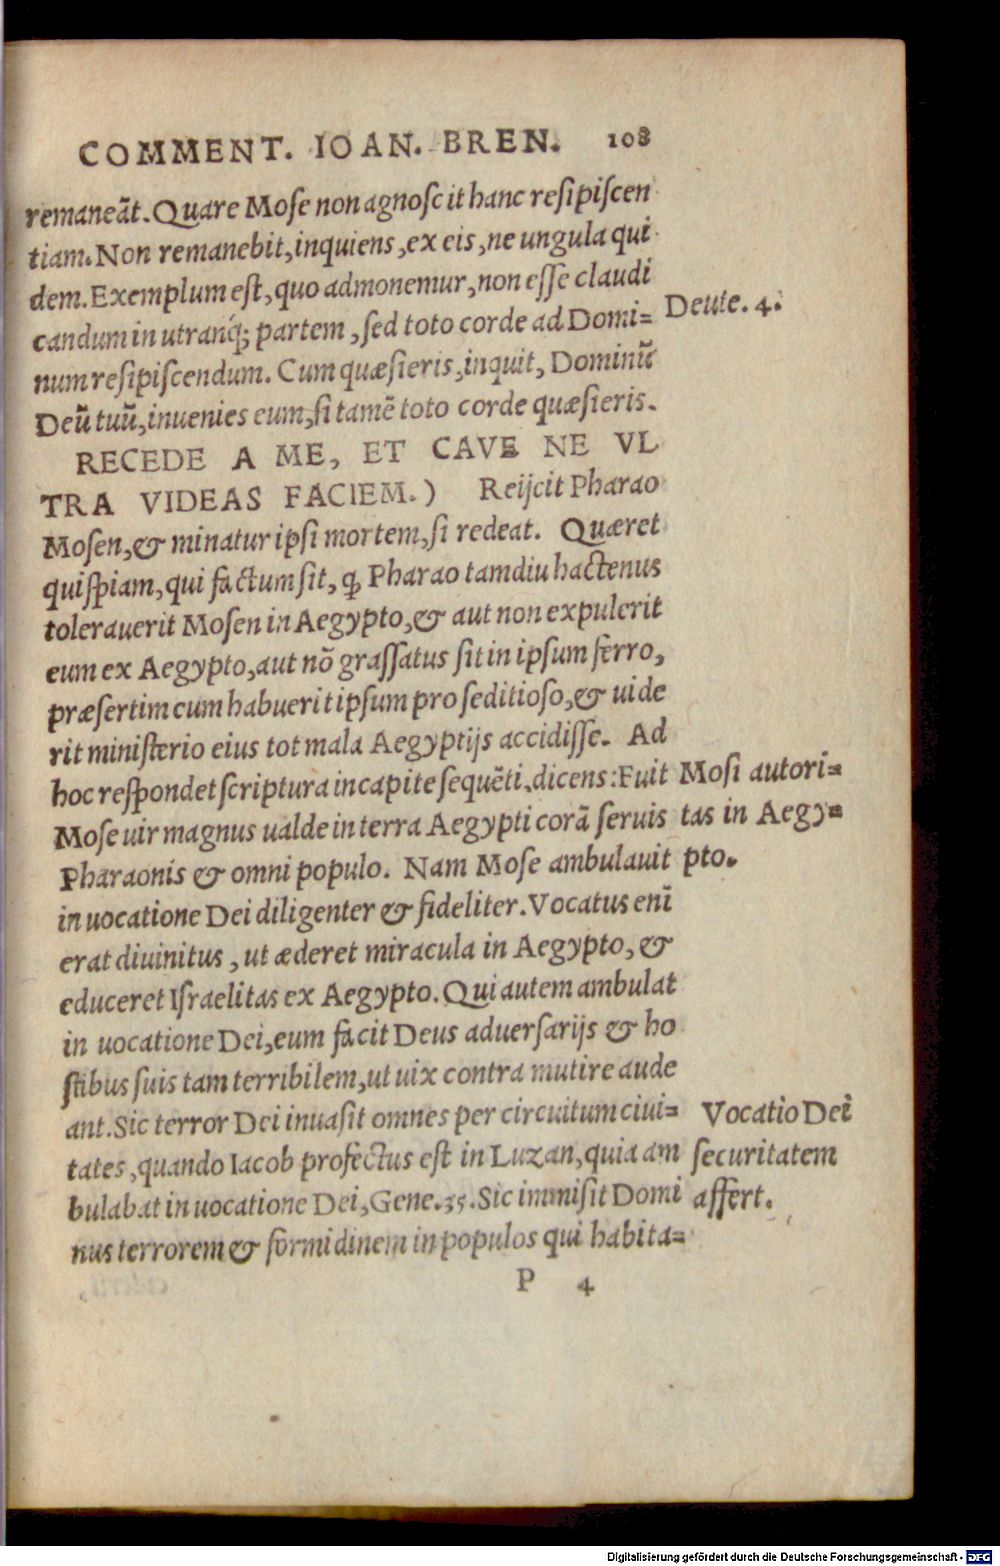 COMMENT. IOAN. BREN. 108
remaneãt. Quare Mose non agnoscit hanc resipiscen
tiam. Non remanebit, inquiens, ex eis, ne ungula qui
dem. Exemplum est, quo admonemur, non esse claudi
candum in utranq́; partem, sed toto corde ad Domi=
num resipiscendum. Cum quæsieris, inquit, Dominũ
Deũ tuũ, inuenies eum, si tamẽ toto corde quæsieris.
Deute. 4.
RECEDE A ME, ET CAVE NE VL
TRA VIDEAS FACIEM.) Reijcit Pharao
Mosen, & minatur ipsi mortem, si redeat. Quæret
quispiam, qui factum sit, ꝙ Pharao tamdiu hactenus
tolerauerit Mosen in Aegypto, & aut non expulerit
eum ex Aegypto, aut nõ grassatus sit in ipsum ferro,
præsertim cum habuerit ipsum pro seditioso, & uide
rit ministerio eius tot mala Aegyptijs accidisse. Ad
hoc respondet scriptura in capite sequẽti, dicens: Fuit
Mose uir magnus ualde in terra Aegypti corã seruis
Pharaonis & omni populo. Nam Mose ambulauit
Mosi autori=
tas in Aegy=
pto.
in uocatione Dei diligenter & fideliter. Vocatus enĩ
erat diuinitus, ut æderet miracula in Aegypto, &
educeret Israelitas ex Aegypto. Qui autem ambulat
in uocatione Dei, eum facit Deus aduersarijs & ho
stibus suis tam terribilem, ut uix contra mutire aude
ant. Sic terror Dei inuasit omnes per circuitum ciui=
tates, quando Iacob profectus est in Luzan, quia am
bulabat in uocatione Dei, Gene. 35. Sic immisit Domi
nus terrorem & formidinem in populos qui habita=
Vocatio Dei
securitatem
affert.
P 4
Digitalisierung gefördert durch die Deutsche Forschungsgemeinschaft - DFG